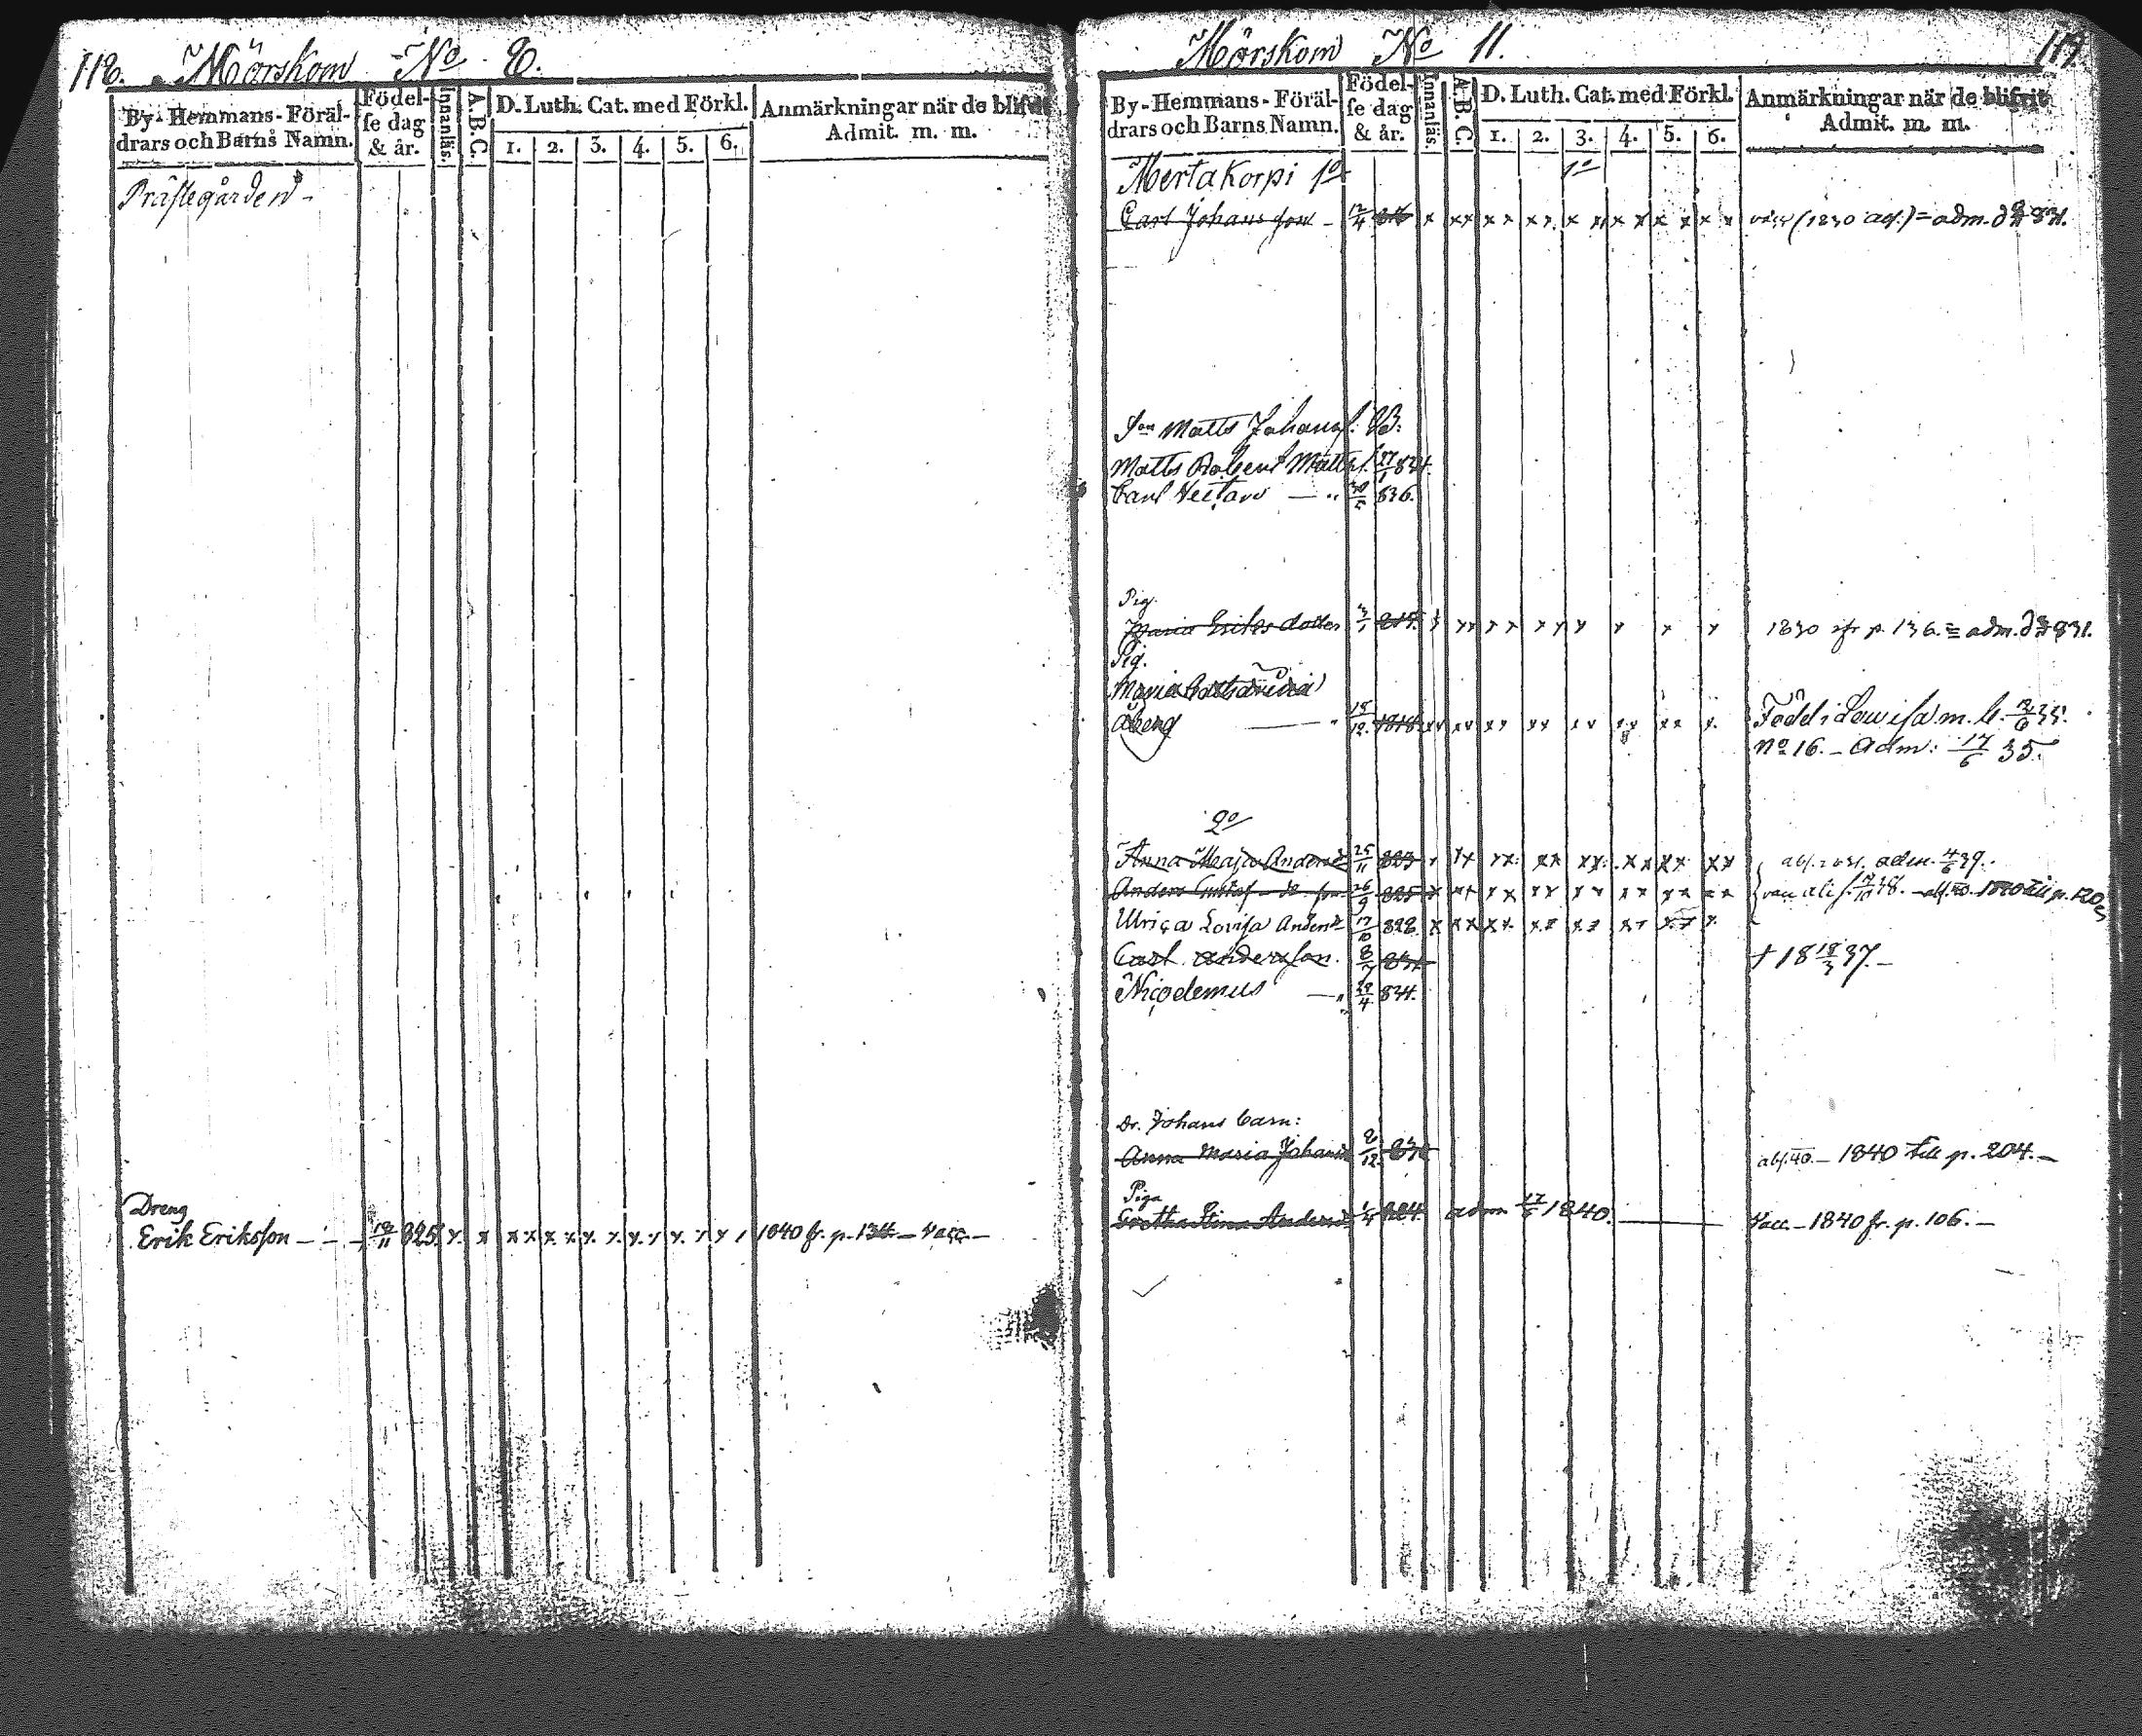 118. Mörskom No 8.
By-Hemmans-Föräl-
drars och Barns Namn.
Födel-
se dag
& år.
Innanläs.
A.B.C.
D. Luth. Cat. med Förkl.
1. 2. 3. 4. 5. 6.
Anmärkningar när de blifvit
Admit. m. m.
Prästegården
Dreng
Erik Eriksson 18/11 825. x x x x x x x x x x x x 1840 fr. p. 134. - Vacc. -
Mörskom No 11. 119.
By-Hemmans-Föräl-
drars och Barns Namn.
Födel-
se dag
& år.
Innanläs.
A.B.C.
D. Luth. Cat. med Förkl.
1. 2. 3. 4. 5. 6.
Anmärkningar när de blifvit
Admit. m. m.
Mertakorpi 1o 1o
Carl Johansson x xx xx xx x x x x x x x x (1830 = adm. 831.
Son Matts Johans. B:
Matts Robert Matts. 834.
Carl Gustav - " 30/5 836.
Pig.
Maria Eriksdotter xx xx xx x x x x 1830 fr p. 136. = adm. 831.
Pig.
Maria
Åberg - " 18/12. 1818. xx xx xx xx xx xx xx x. Född i Lowisa. m. b. 35.
No 16. - Adm: 17/6 35.
2o
Anna Maja Andersd 25/11 823 x xx xx xx xx xx xx xx adm. 4/6 39.
Anders Gustaf 26/9 825 x xx xx xx xx xx xx xx 1840 till p. 120
Ulrica Lovisa Andersd 17/10 828. x xx xx xx xx xx xx x.
Carl Andersson. 8/7 831 † 18 18/3 37. -
Nicodemus - " 834.
Dr. Johans barn:
Anna Maria Johansd 2/12. abs. 40. - 1840 till p. 204. -
Piga
Gretha Stina Andersd 1/4 824. adm 1840. Vacc. - 1840 fr. p. 106. -